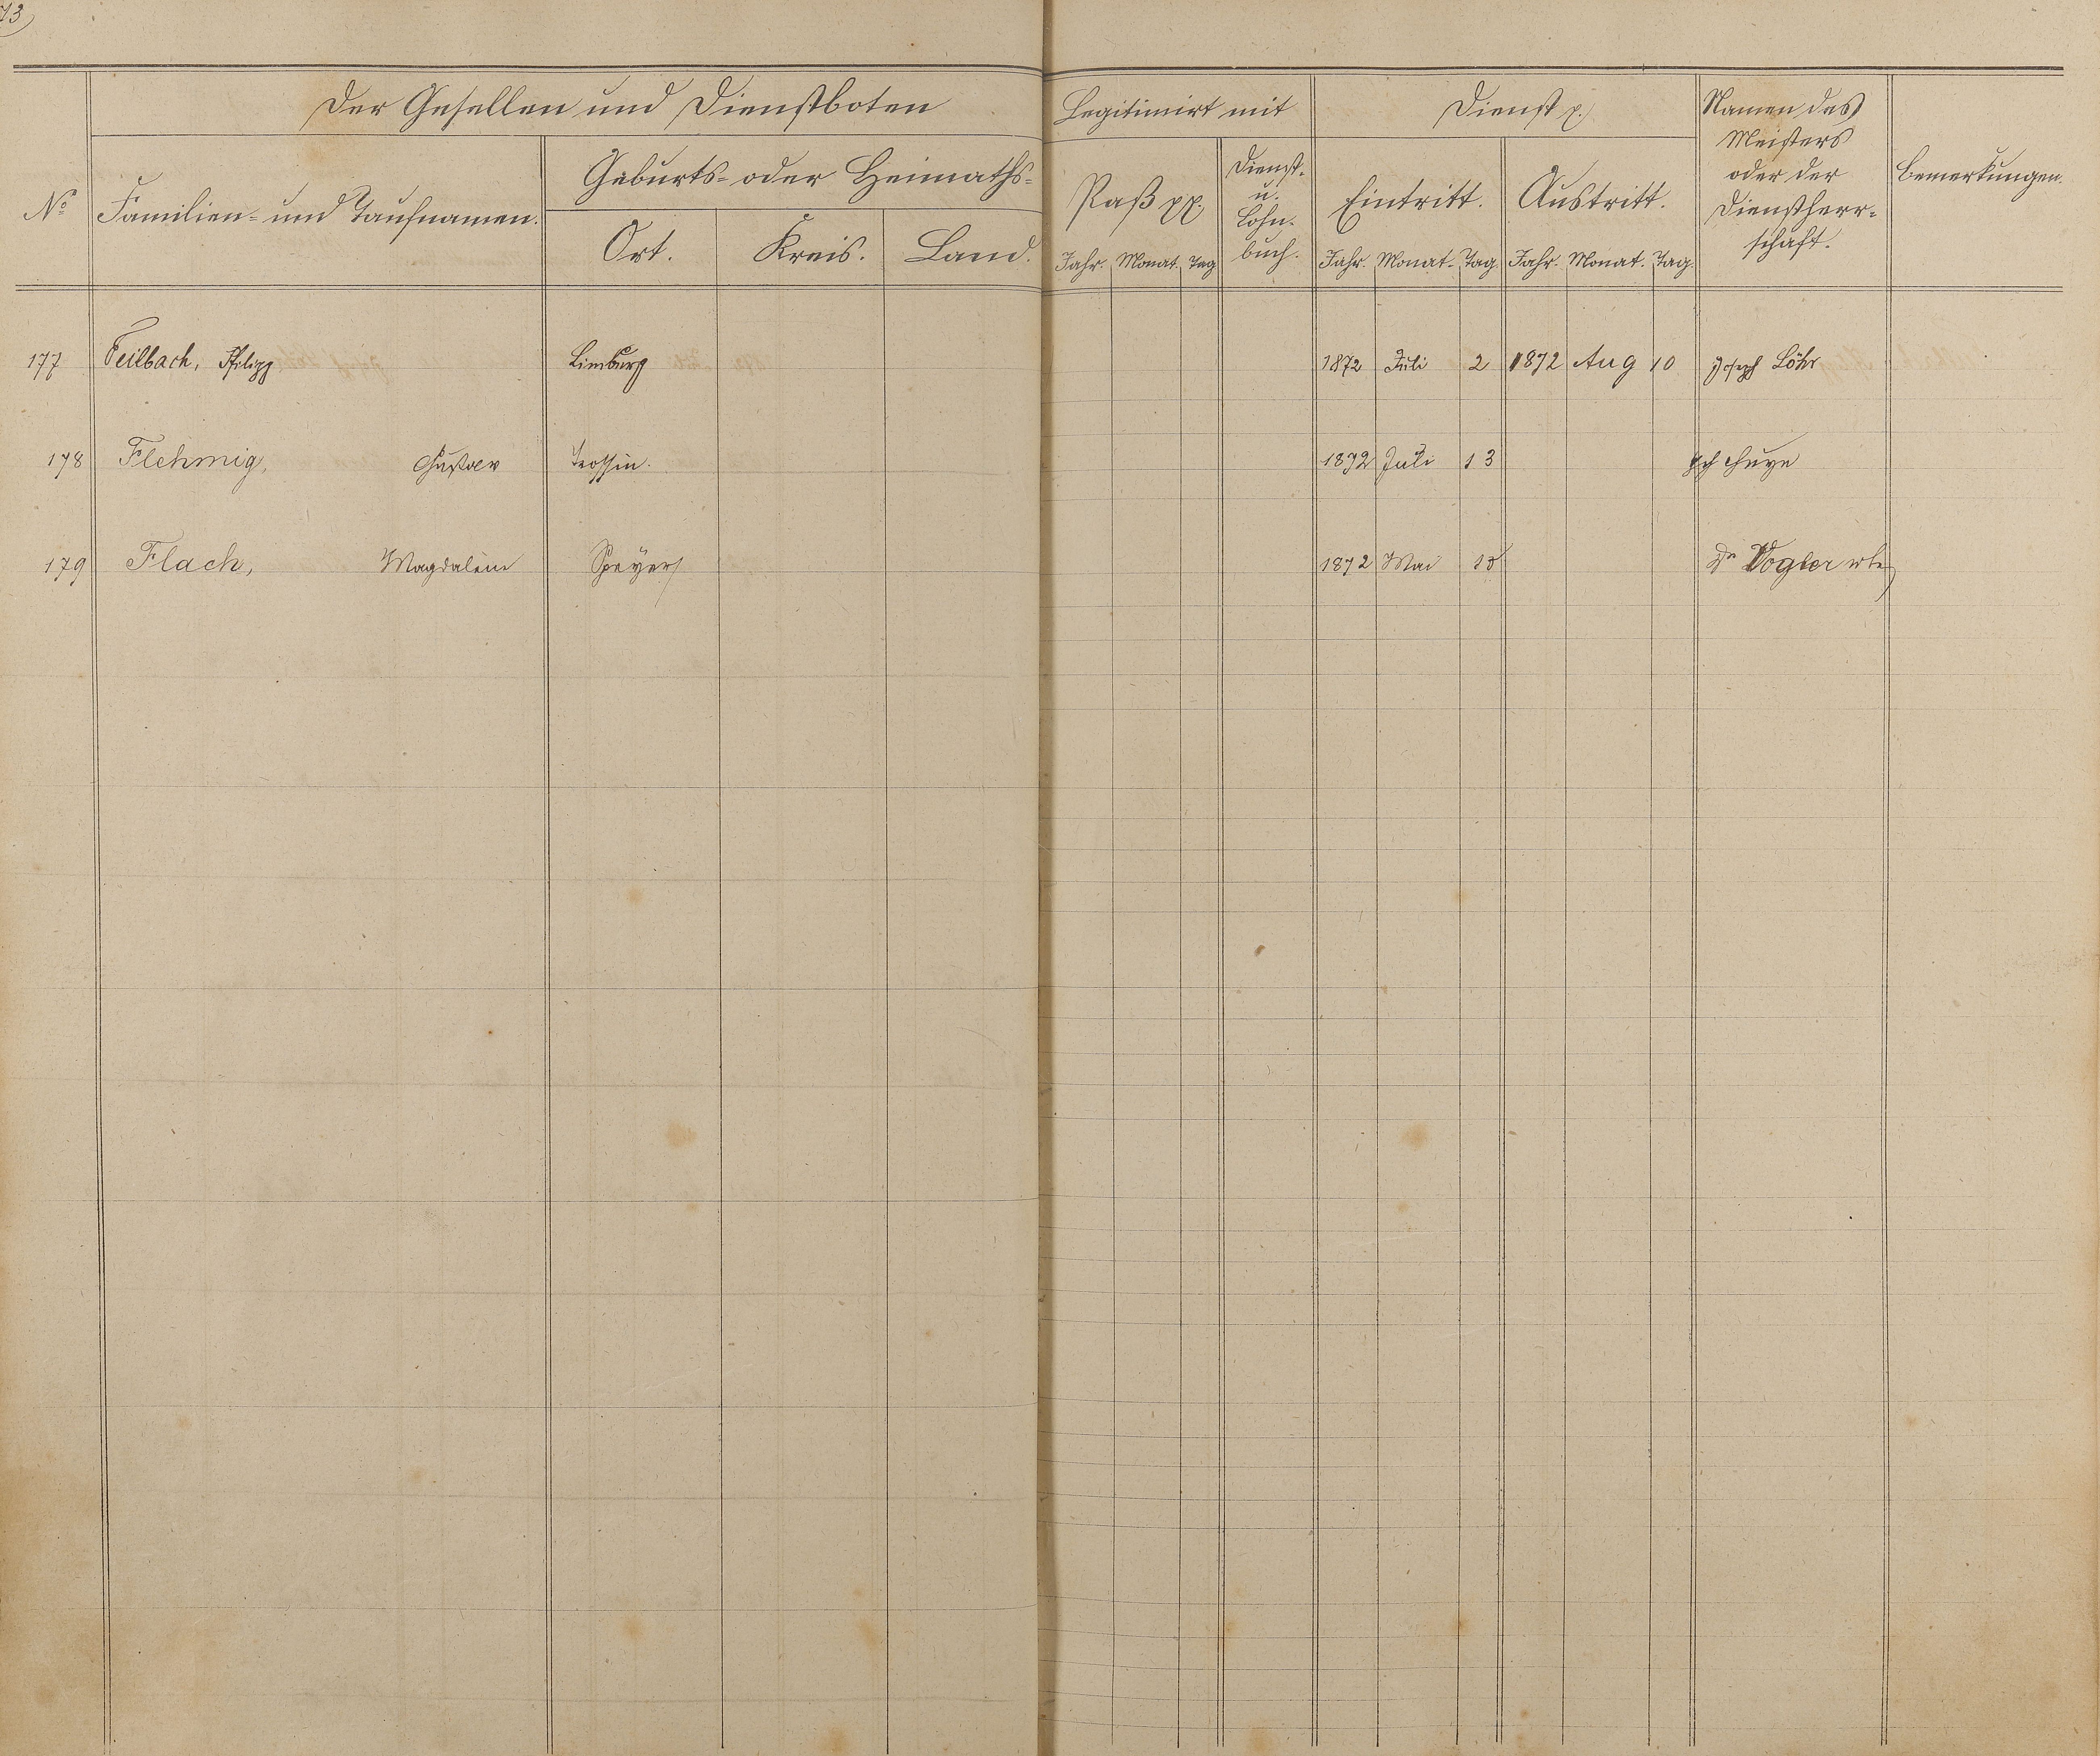 73
Der Gesellen und Dienstboten
Legitimirt mit
Dienst p.
Namen des
Meisters
oder der
Dienstherr-
schaft.
Bemerkungen.
No
Familien- und Taufnamen.
Geburts- oder Heimaths-
Ort. Kreis. Land.
Paß pp.
Jahr. Monat. Tag
Dienst-
u.
Lohn-
buch.
Eintritt.
Jahr. Monat. Tag.
Austritt.
Jahr. Monat. Tag.
177 Feilbach, Philipp Limburg 1872 Juli 2 1872 Aug 10 Joseph Löhr
178 Flehmig, Gustav 1872 Juli 13
179 Flach, Magdalene Speyer 1872 Mai Dr Vogler